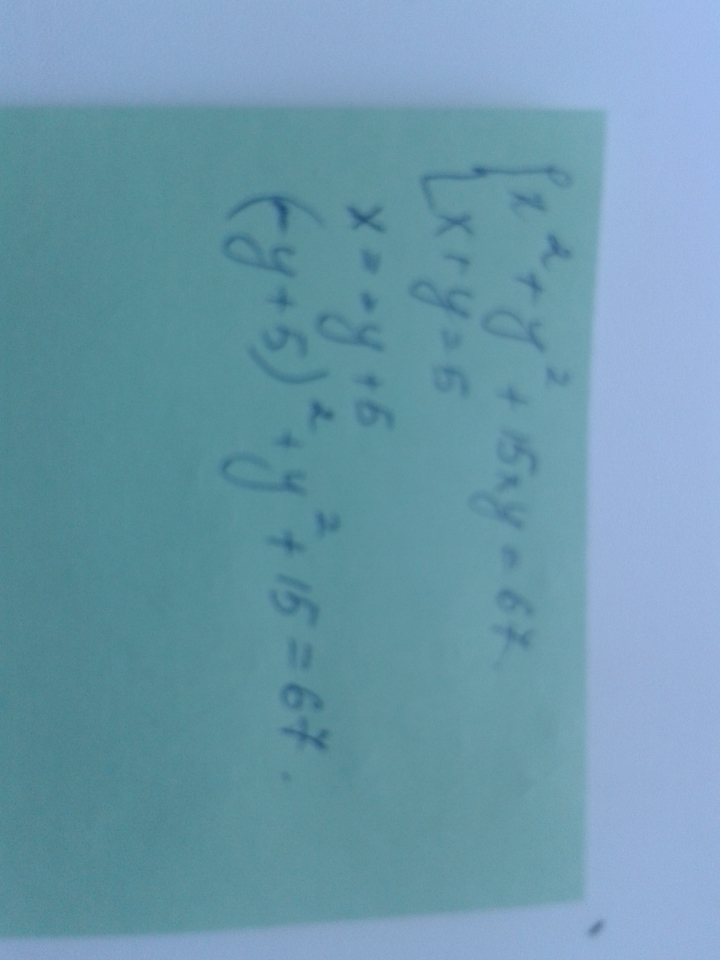 {x² + y² + 15xy = 67.
{x + y = 5
x = -y + 5
(-y + 5)² + y² + 15 = 67.